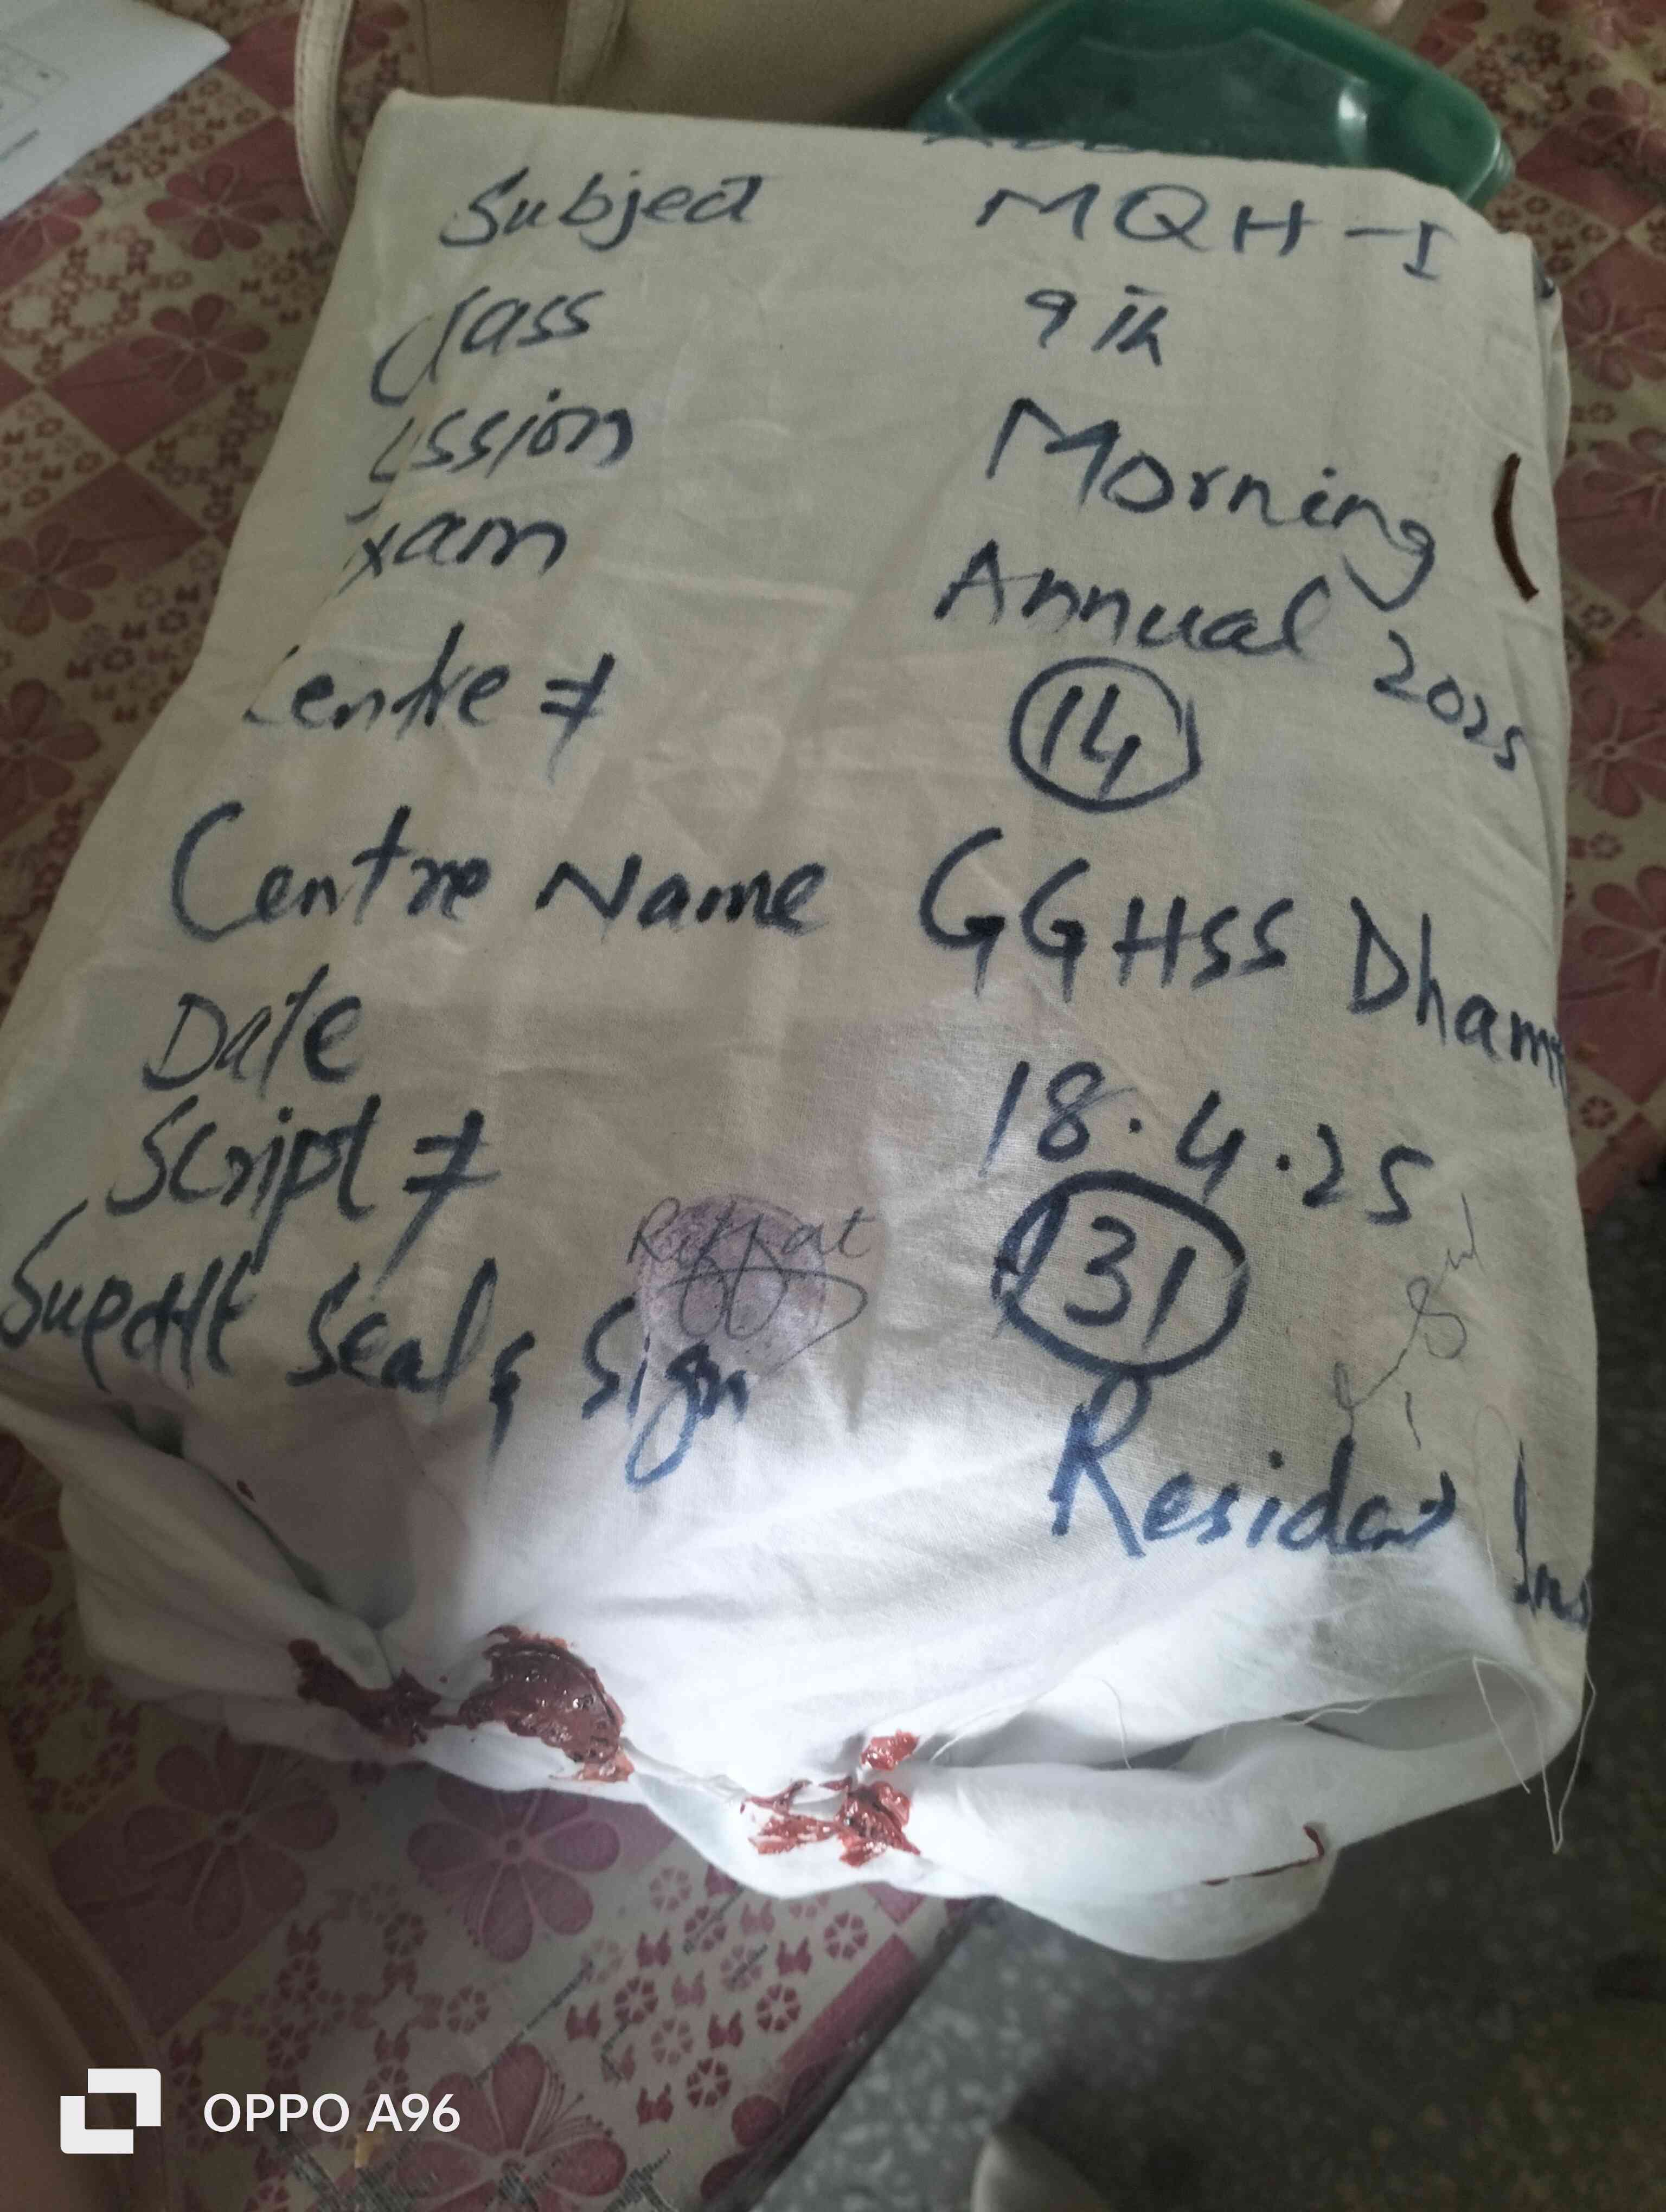 Subject MQH-I
Class 9th
ession Morning
xam Annual 2025
entre # 14
Centre Name GGHSS Dham
Date 18.4.25
Script # 31
Riffat
Supdtt Seal & Sign
Resident Ins
OPPO A96